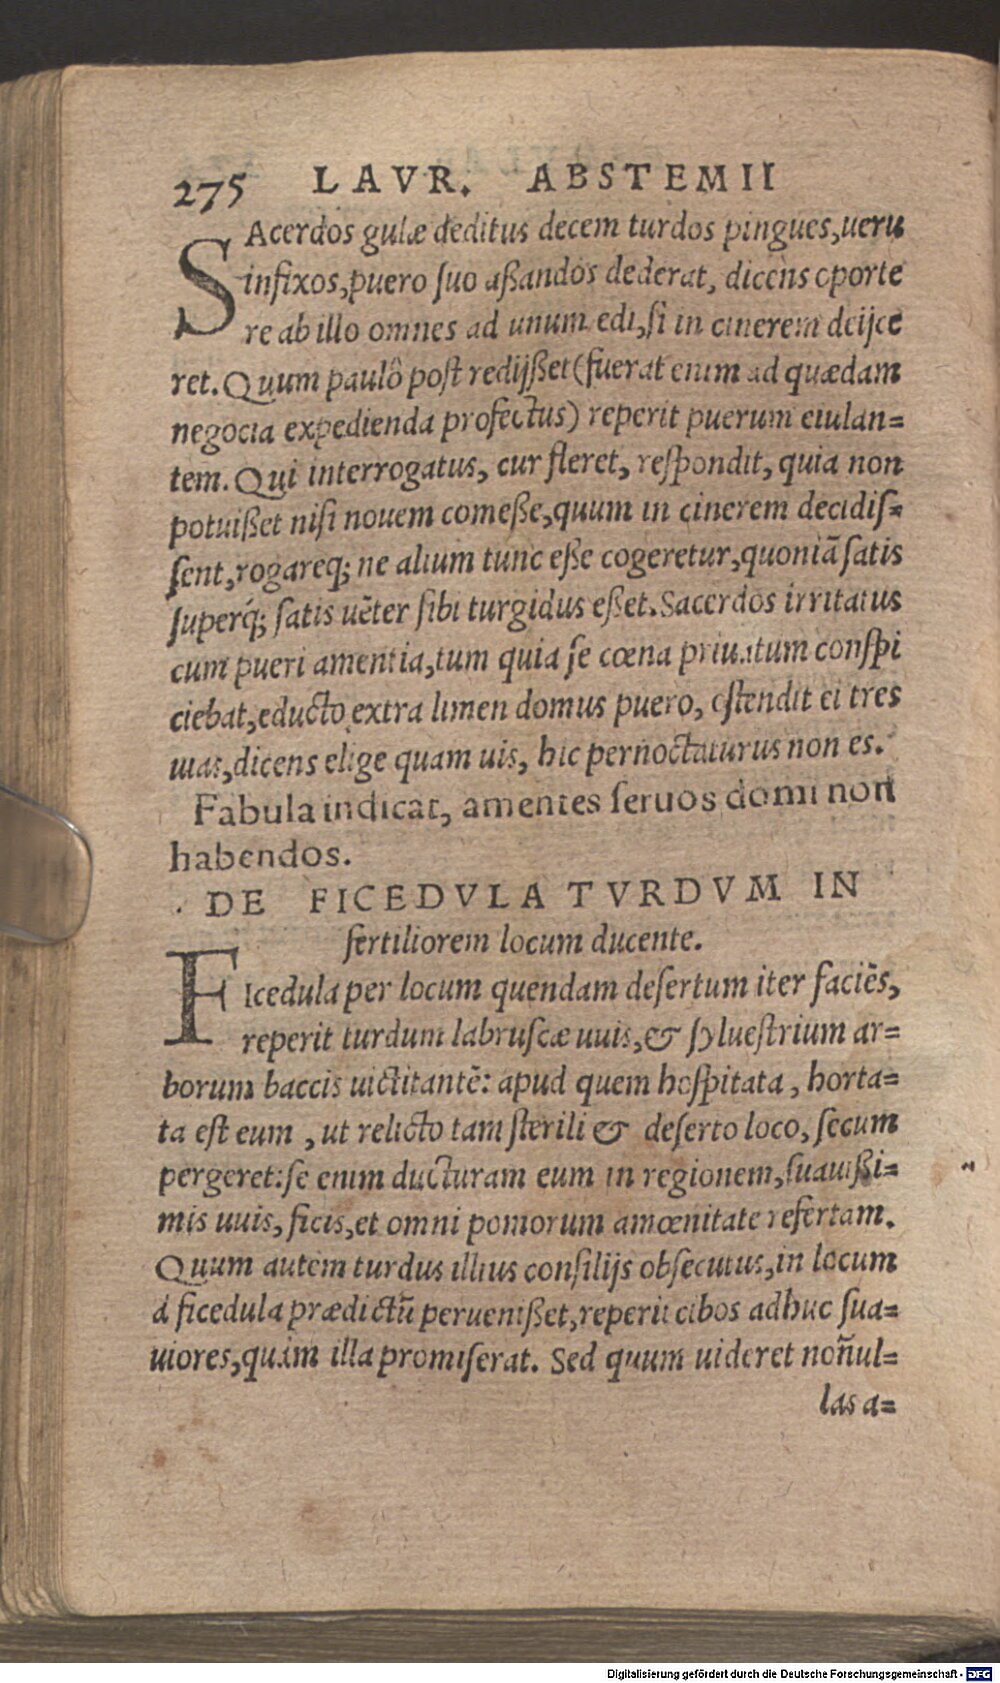 275 LAVR. ABSTEMII
SAcerdos gulæ deditus decem turdos pingues, ueru
infixos, puero ſuo aßandos dederat, dicens oporte
re ab illo omnes ad unum edi, ſi in cinerem deijce
ret. Quum paulô poſt redijßet (fuerat enim ad quædam
negocia expedienda profectus) reperit puerum eiulan=
tem. Qui interrogatus, cur fleret, reſpondit, quia non
potuißet niſi nouem comeße, quum in cinerem decidiſ=
ſent, rogareq́; ne alium tunc eße cogeretur, quoniã ſatis
ſuperq́; ſatis uẽter ſibi turgidus eßet. Sacerdos irritatus
cum pueri amentia, tum quia ſe cœna priuatum conſpi
ciebat, educto extra limen domus puero, oſtendit ei tres
uias, dicens elige quam uis, hic pernoctaturus non es.
Fabula indicat, amentes ſeruos domi non
habendos.
DE FICEDVLA TVRDVM IN
fertiliorem locum ducente.
FIcedula per locum quendam deſertum iter faciẽs,
reperit turdum labruſcæ uuis, & ſylueſtrium ar=
borum baccis uictitantẽ: apud quem hoſpitata, horta=
ta eſt eum, ut relicto tam ſterili & deſerto loco, ſecum
pergeret: ſe enim ducturam eum in regionem, ſuauißi=
mis uuis, ficis, et omni pomorum amœnitate refertam.
Quum autem turdus illius conſilijs obſecutus, in locum
á ficedula prædictũ perueniſſet, reperit cibos adhuc ſua=
uiores, quàm illa promiſerat. Sed quum uideret noñul=
las a=
Digitalisierung gefördert durch die Deutsche Forschungsgemeinschaft - DFG